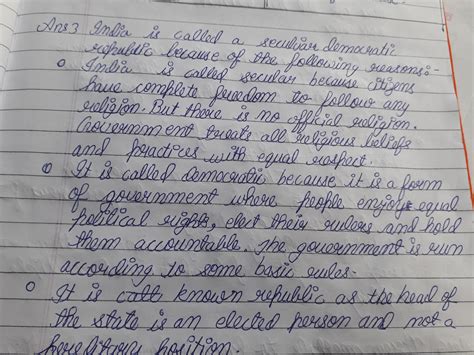 Ans 3 India is called a secular democratic
republic because of the following reasons:-
o India is called secular because citizens
have complete freedom to follow any
religion. But there is no official religion.
Government treats all religious beliefs
and practices with equal respect.
o It is called democratic because it is a form
of government where people enjoys equal
political rights, elect their rulers and hold
them accountable. The government is run
according to some basic rules.
o It is call known republic as the head of
the state is an elected person and not a
hereditary position.